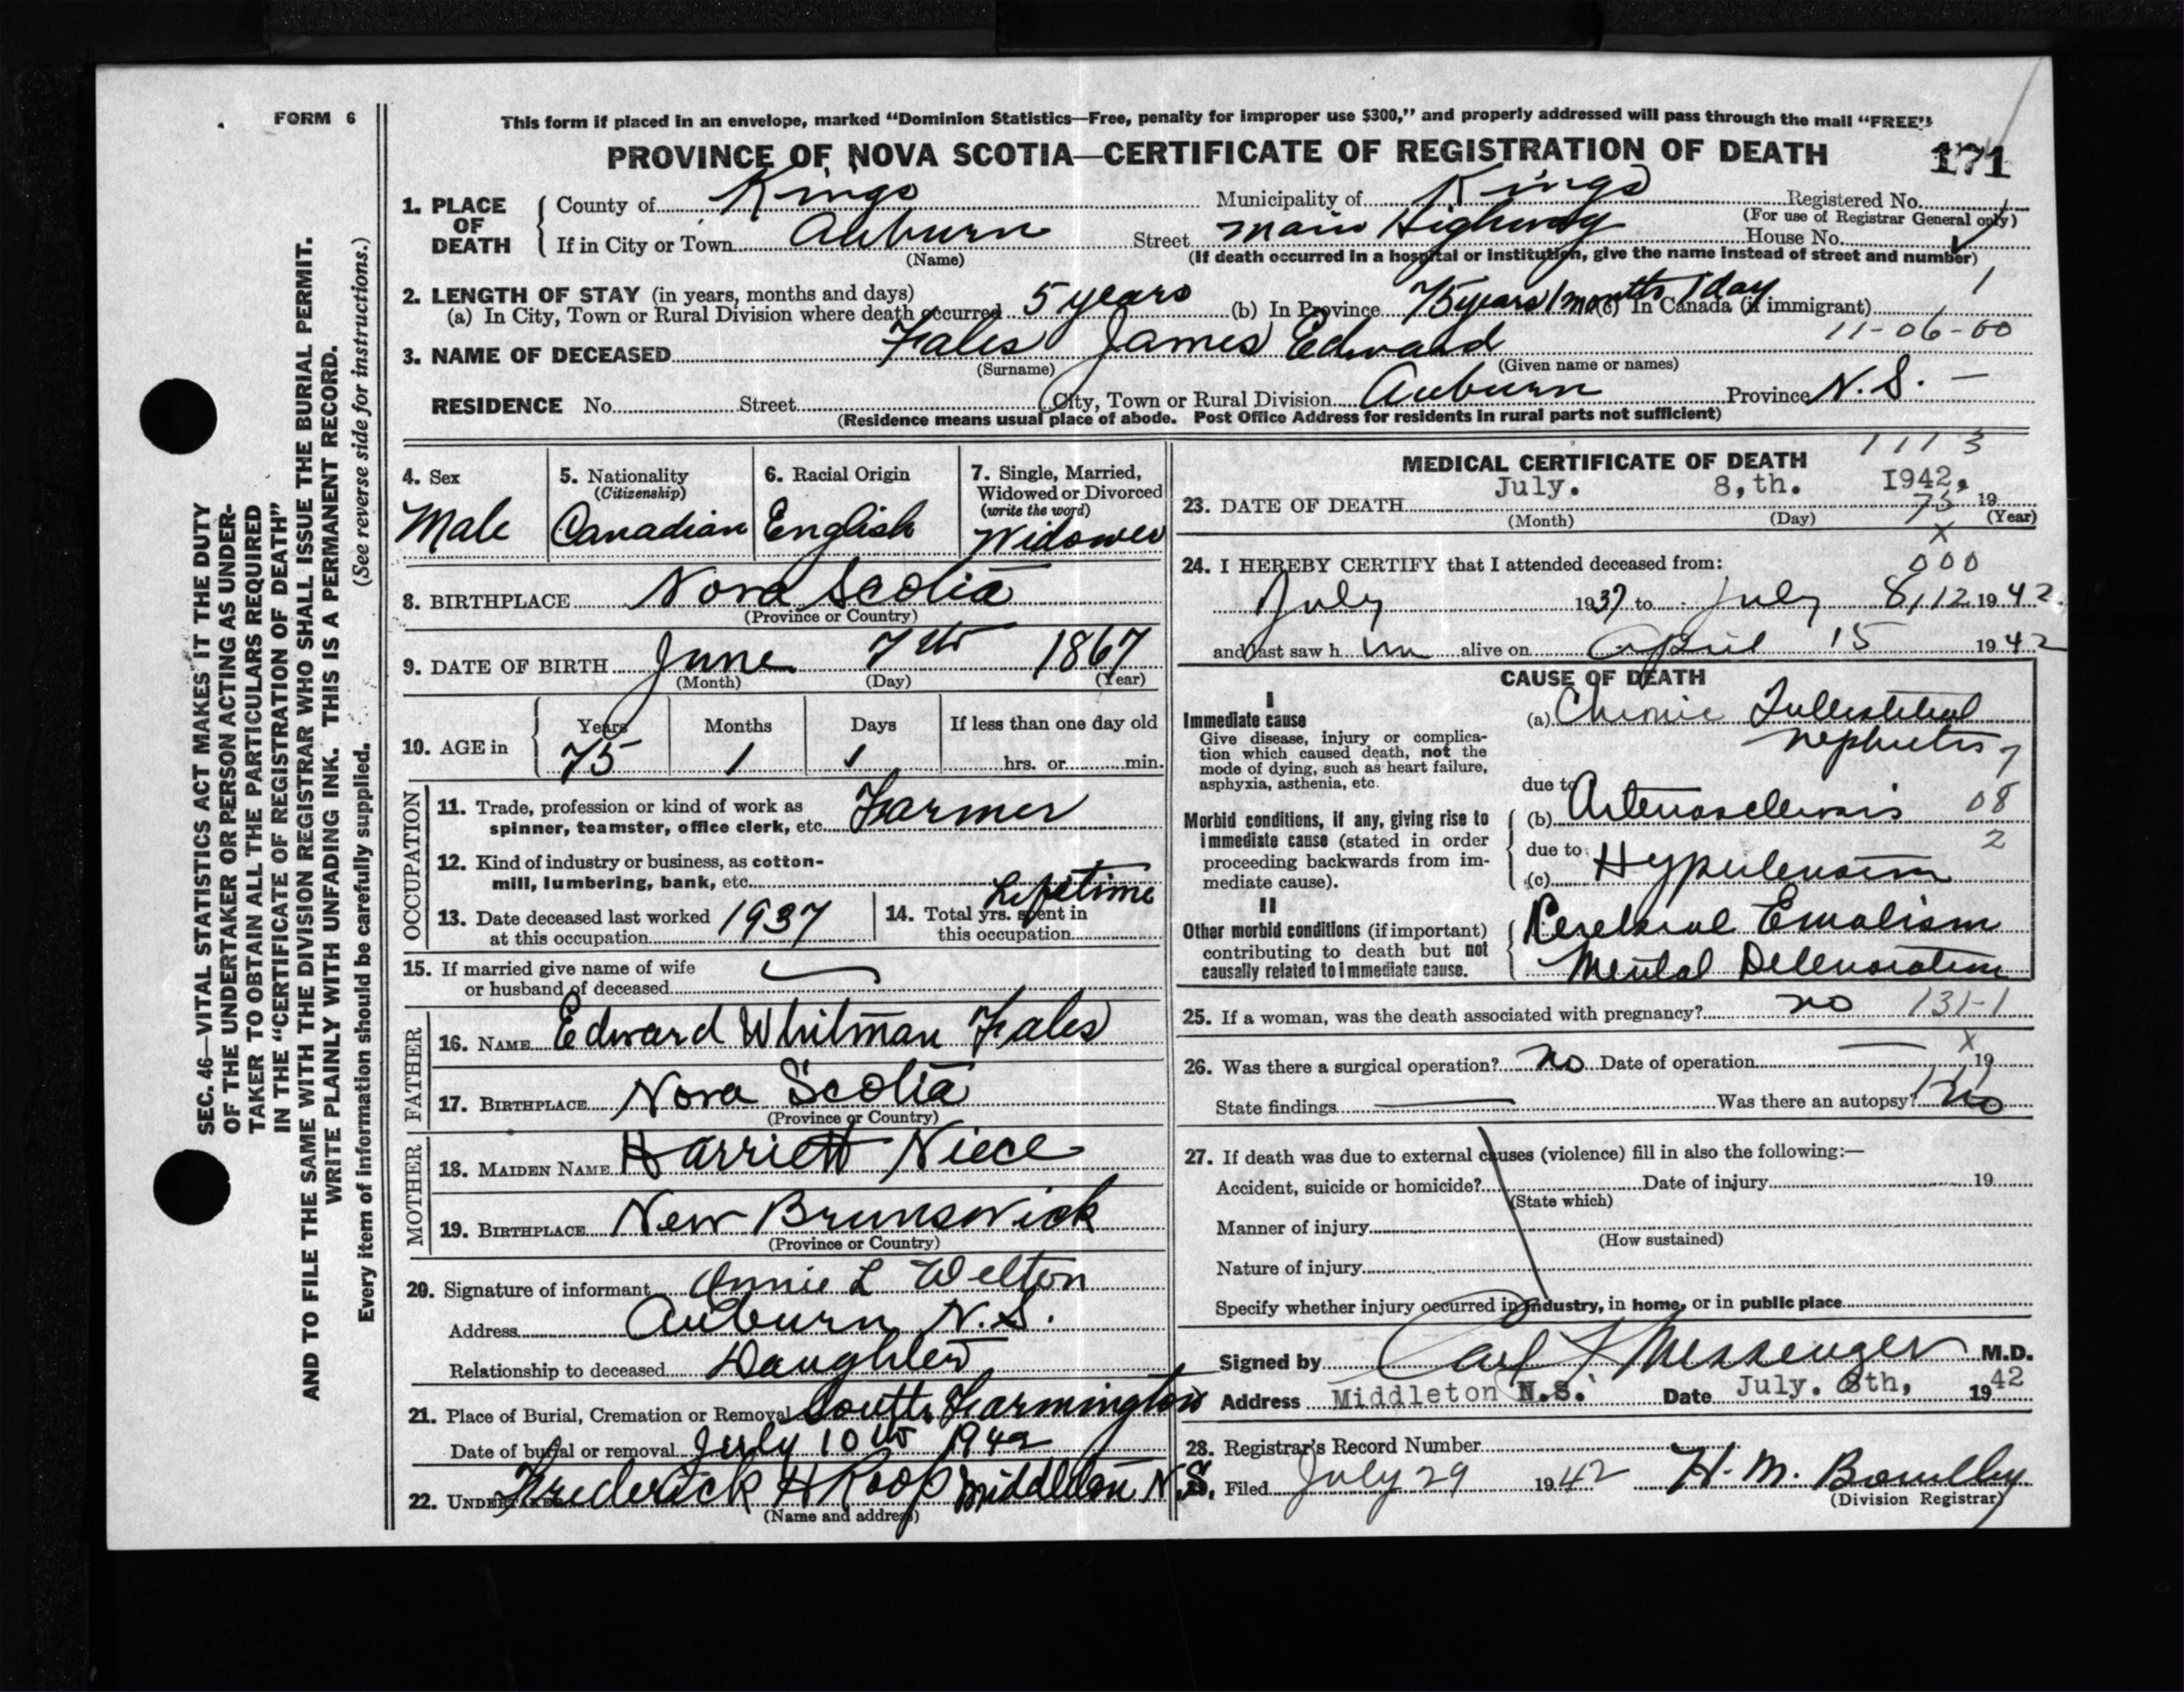 FORM 6
This form if placed in an envelope, marked "Dominion Statistics—Free, penalty for improper use $300," and properly addressed will pass through the mail "FREE"
PROVINCE OF NOVA SCOTIA—CERTIFICATE OF REGISTRATION OF DEATH
171
1. PLACE OF DEATH
County of Kings Municipality of Kings Registered No.
(For use of Registrar General only)
If in City or Town Auburn Street Main Highway House No.
(Name)
(If death occurred in a hospital or institution, give the name instead of street and number)
2. LENGTH OF STAY (in years, months and days)
(a) In City, Town or Rural Division where death occurred 5 years (b) In Province 75 years 1 month 1 day (c) In Canada (if immigrant)
11-06-00
3. NAME OF DECEASED Fales James Edward
(Surname) (Given name or names)
RESIDENCE No. Street City, Town or Rural Division Auburn Province N.S. —
(Residence means usual place of abode. Post Office Address for residents in rural parts not sufficient)
4. Sex
Male
5. Nationality
(Citizenship)
Canadian
6. Racial Origin
English
7. Single, Married,
Widowed or Divorced
(write the word)
Widower
8. BIRTHPLACE Nova Scotia
(Province or Country)
9. DATE OF BIRTH June 7th 1867
(Month) (Day) (Year)
10. AGE in
Years Months Days If less than one day old
75 1 1 hrs. or min.
OCCUPATION
11. Trade, profession or kind of work as
spinner, teamster, office clerk, etc. Farmer
12. Kind of industry or business, as cotton-
mill, lumbering, bank, etc.
13. Date deceased last worked
at this occupation 1937
14. Total yrs. spent in
this occupation Lifetime
15. If married give name of wife
or husband of deceased
FATHER
16. NAME Edward Whitman Fales
17. BIRTHPLACE Nova Scotia
(Province or Country)
MOTHER
18. MAIDEN NAME Harriett Niece
19. BIRTHPLACE New Brunswick
(Province or Country)
20. Signature of informant Annie L Welton
Address Auburn N.S.
Relationship to deceased Daughter
21. Place of Burial, Cremation or Removal South Farmington
Date of burial or removal July 10th 1942
22. UNDERTAKER Frederick H Roop Middleton N.S.
(Name and address)
1113
MEDICAL CERTIFICATE OF DEATH
23. DATE OF DEATH July. 8,th. 1942. 19
(Month) (Day) (Year)
75
X
24. I HEREBY CERTIFY that I attended deceased from:
000
July 1937 to July 8,12 1942
and last saw h im alive on April 15 1942
CAUSE OF DEATH
I
Immediate cause
Give disease, injury or complica-
tion which caused death, not the
mode of dying, such as heart failure,
asphyxia, asthenia, etc.
(a) Chronic Interstitial
nephritis 7
due to
Morbid conditions, if any, giving rise to
immediate cause (stated in order
proceeding backwards from im-
mediate cause).
(b) Arteriosclerosis 08
2
due to
(c) Hypertension
II
Other morbid conditions (if important)
contributing to death but not
causally related to immediate cause.
Cerebral Embolism
Mental Deterioration
25. If a woman, was the death associated with pregnancy? no 131-1
X
26. Was there a surgical operation? no Date of operation 19
State findings Was there an autopsy? No
27. If death was due to external causes (violence) fill in also the following:—
Accident, suicide or homicide? Date of injury 19
(State which)
Manner of injury
(How sustained)
Nature of injury
Specify whether injury occurred in industry, in home, or in public place
Signed by Carl F Messenger M.D.
Address Middleton N.S. Date July. 8th, 1942
28. Registrar's Record Number
Filed July 29 1942 H. M.
(Division Registrar)
SEC. 46—VITAL STATISTICS ACT MAKES IT THE DUTY
OF THE UNDERTAKER OR PERSON ACTING AS UNDER-
TAKER TO OBTAIN ALL THE PARTICULARS REQUIRED
IN THE "CERTIFICATE OF REGISTRATION OF DEATH"
AND TO FILE THE SAME WITH THE DIVISION REGISTRAR WHO SHALL ISSUE THE BURIAL PERMIT.
WRITE PLAINLY WITH UNFADING INK. THIS IS A PERMANENT RECORD.
Every item of information should be carefully supplied. (See reverse side for instructions.)